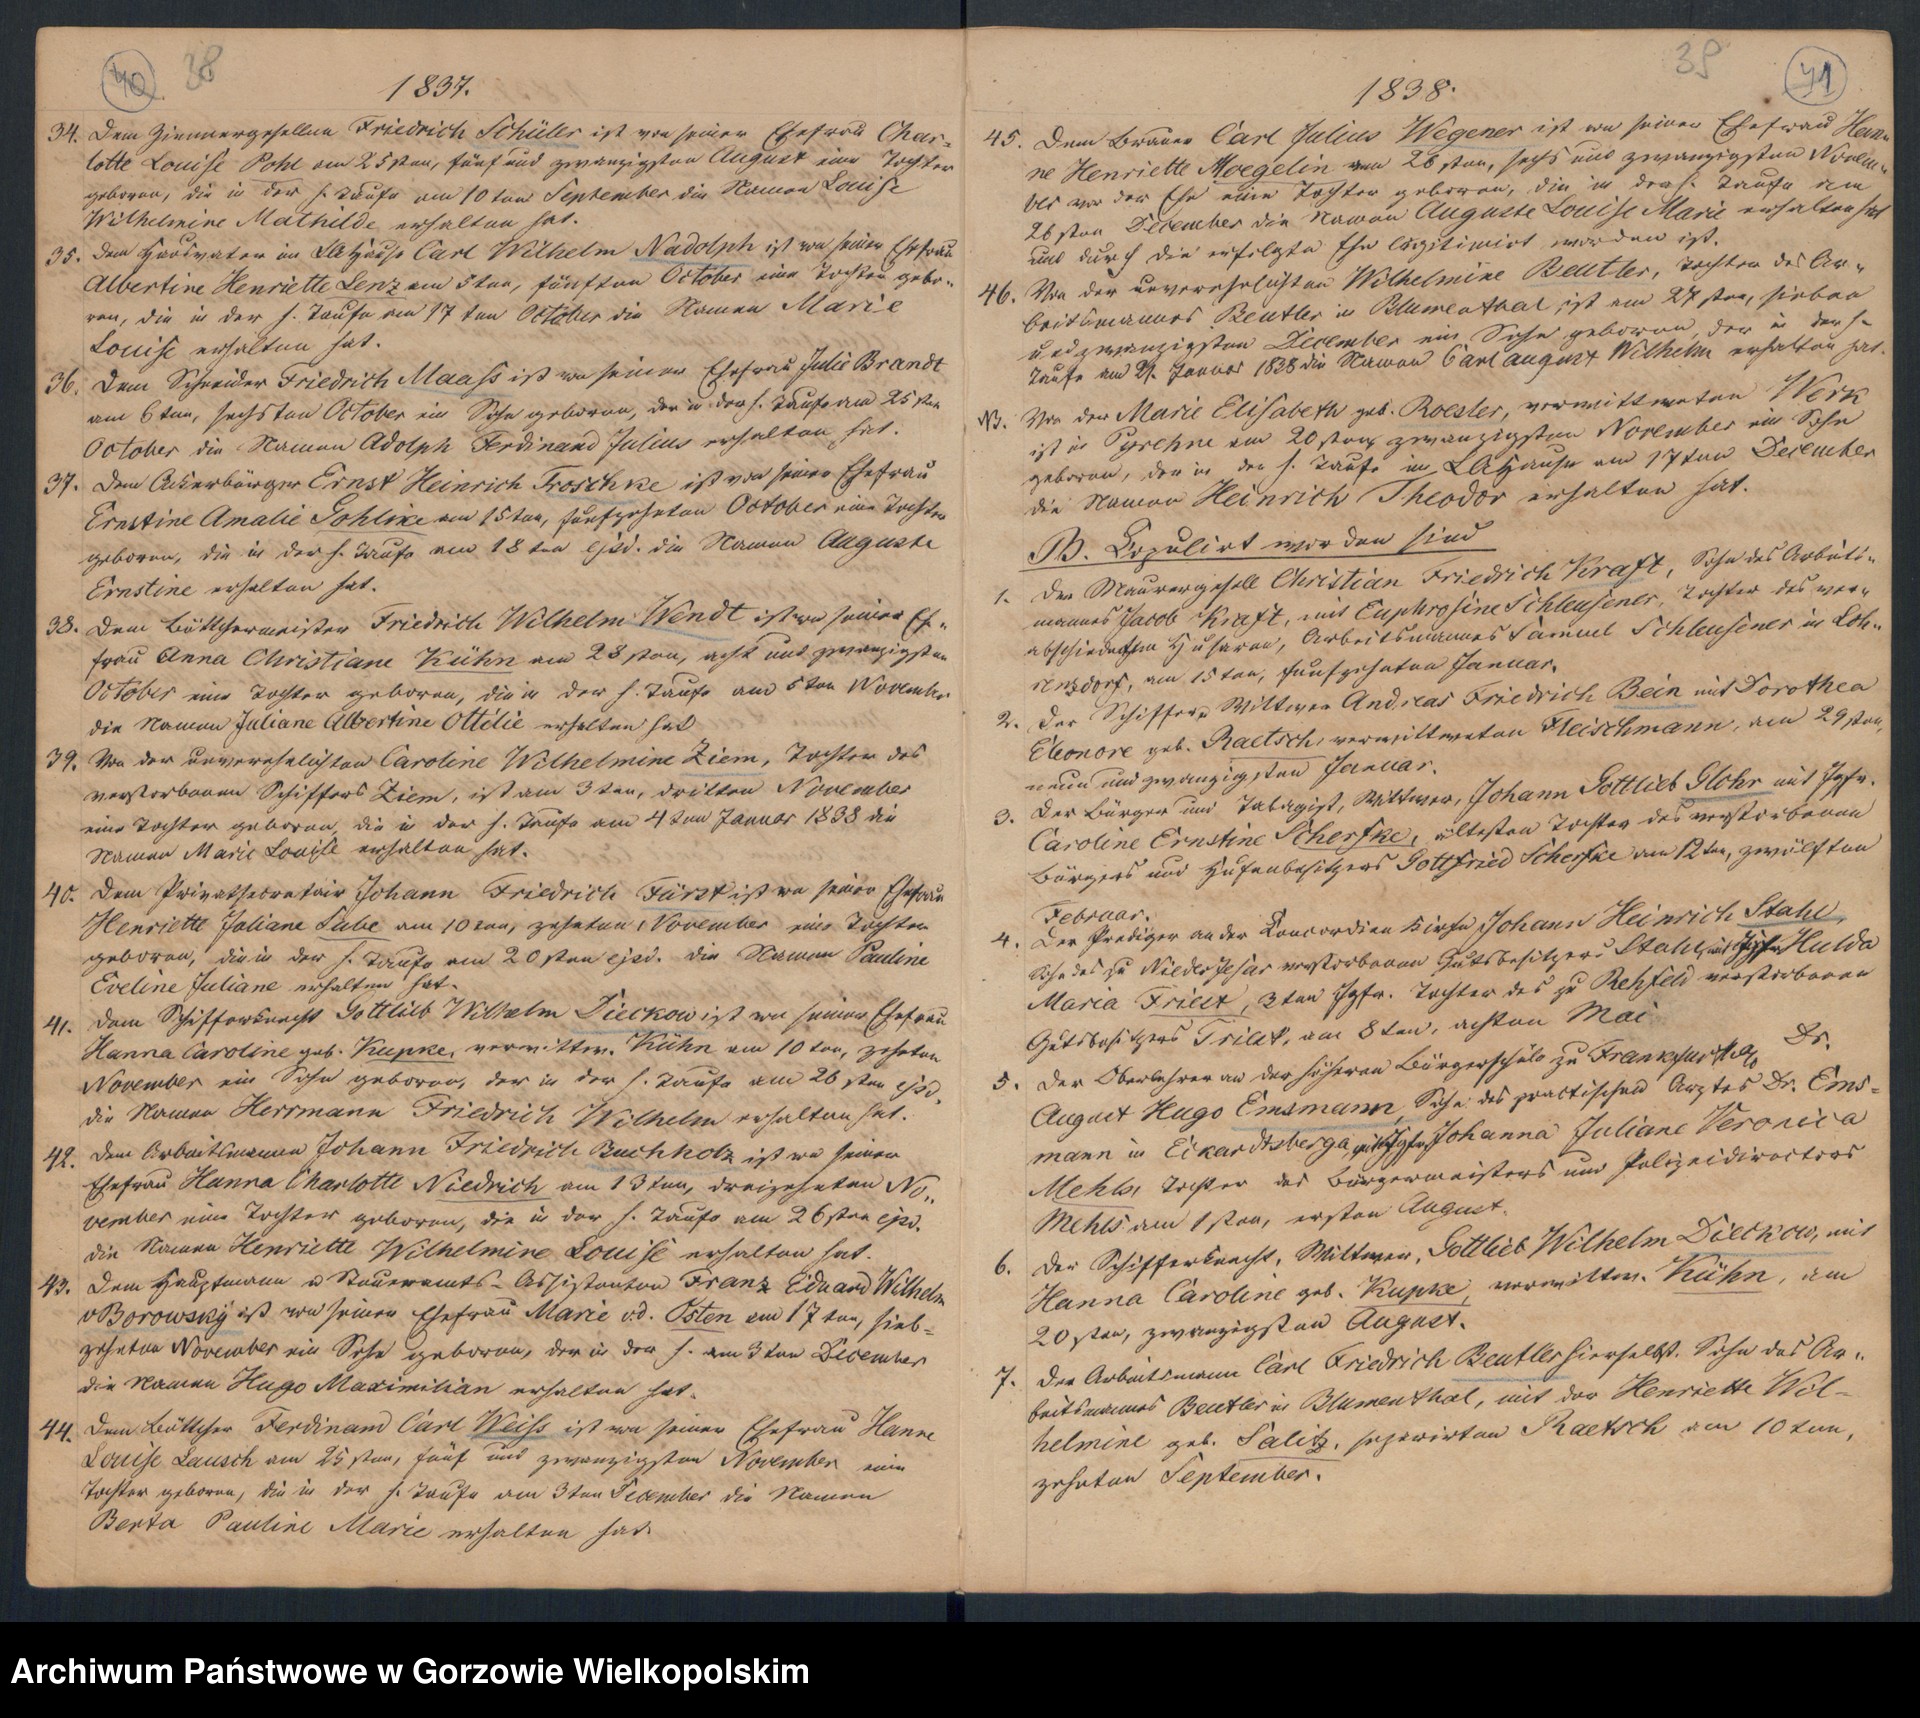 40 38
1837.
34. Dem Zimmergesellen Friedrich Schüler ist von seiner Ehefrau Char-
lotte Louise Pohl am 25sten, fünf und zwanzigsten August eine Tochter
geboren, die in der h. Taufe am 10ten September die Namen Louise
Wilhelmine Mathilde erhalten hat.
35. Dem Hausvater im LAHause Carl Wilhelm Nadolph ist von seiner Ehefrau
Albertine Henriette Lenz am 5ten, fünften October eine Tochter gebo-
ren, die in der h. Taufe am 17ten October die Namen Marie
Louise erhalten hat.
36. Dem Schneider Friedrich Maass ist von seiner Ehefrau Julie Brandt
am 6ten, sechsten October ein Sohn geboren, der in der h. Taufe am 25sten
October die Namen Adolph Ferdinand Julius erhalten hat.
37. Dem Ackerbürger Ernst Heinrich Froschke ist von seiner Ehefrau
Ernstine Amalie Gohlike am 15ten, fünfzehnten October eine Tochter
geboren, die in der h. Taufe am 18ten ejsd. die Namen Auguste
Ernstine erhalten hat.
38. Dem Böttchermeister Friedrich Wilhelm Wendt ist von seiner Eh-
frau Anna Christiane Kühn am 28sten, acht und zwanzigsten
October eine Tochter geboren, die in der h. Taufe am 5ten November
die Namen Juliane Albertine Ottilie erhalten hat
39. Von der unverehelichten Caroline Wilhelmine Ziem, Tochter des
verstorbenen Schiffers Ziem, ist am 3ten, dritten November
eine Tochter geboren, die in der h. Taufe am 4ten Januar 1838 die
Namen Marie Louise erhalten hat.
40. Dem Privatsecretair Johann Friedrich Fürst ist von seiner Ehefrau
Henriette Juliane Lube am 10ten, zehnten November eine Tochter
geboren, die in der h. Taufe am 20sten ejsd. die Namen Pauline
Eveline Juliane erhalten hat.
41. Dem Schifferknecht Gottlieb Wilhelm Dieckow ist von seiner Ehefrau
Hanna Caroline geb. Kupke, verwittw. Kühn am 10ten, zehnten
November ein Sohn geboren, der in der h. Taufe am 26sten ejsd.
die Namen Herrmann Friedrich Wilhelm erhalten hat.
42. Dem Arbeitsmann Johann Friedrich Buchholz ist von seiner
Ehefrau Hanna Charlotte Niedrich am 13ten, dreizehnten No-
vember eine Tochter geboren, die in der h. Taufe am 26sten ejsd.
die Namen Henriette Wilhelmine Louise erhalten hat.
43. Dem Hauptmann u Steueramts-Assistenten Franz Eduard Wilhelm
v Borowsky ist von seiner Ehefrau Marie v.d. Osten am 17ten, sieb-
zehnten November ein Sohn geboren, der in der h. am 3ten December
die Namen Hugo Maximilian erhalten hat.
44. Dem Böttcher Ferdinand Carl Weiss ist von seiner Ehefrau Hanne
Louise Lausch am 25sten, fünf und zwanzigsten November eine
Tochter geboren, die in der h. Taufe am 3ten December die Namen
Berta Pauline Marie erhalten hat.
39 41
1838.
45. Dem Brauer Carl Julius Wegener ist von seiner Ehefrau Han-
ne Henriette Moegelin am 26sten, sechs und zwanzigsten Novem-
ber vor der Ehe eine Tochter geboren, die in der h. Taufe am
26sten December die Namen Auguste Louise Marie erhalten hat
und durch die erfolgte Ehe legitimirt worden ist.
46. Von der unverehelichten Wilhelmine Beutler, Tochter des Ar-
beitsmannes Beutler in Blumenthal, ist am 27sten, sieben
und zwanzigsten December ein Sohn geboren, der in der h.
Taufe am 21. Januar 1838 die Namen Carl August Wilhelm erhalten hat.
NB. Von der Marie Elisabeth geb. Roesler, verwittweten Werk
ist in Pyrehne am 20sten zwanzigsten November ein Sohn
geboren, der in der h. Taufe im LAHause am 17ten December
die Namen Heinrich Theodor erhalten hat.
B. Copulirt worden sind
1. Der Maurergeselle Christian Friedrich Kraft, Sohn des Arbeits-
mannes Jacob Kraft, mit Euphrosine Schleusener, Tochter des ver-
abschiedeten Husaren, Arbeitsmannes Samuel Schleusener in Loh-
renzdorf, am 15ten, fünfzehnten Januar.
2. Der Schiffer, Wittwer Andreas Friedrich Bein mit Dorothea
Eleonore geb. Raetsch, verwittweten Fleischmann, am 29sten,
neun und zwanzigsten Januar.
3. Der Bürger und Tabagist, Wittwer, Johann Gottlieb Glohr mit Jgfr.
Caroline Ernstine Scherfke, ältesten Tochter des verstorbenen
Bürgers und Hufenbesitzers Gottfried Scherfke am 12ten, zwölften
Februar.
4. Der Prediger an der Concordien Kirche Johann Heinrich Stahl,
Sohn des zu Nieder Jesar verstorbenen Gutsbesitzers Stahl, mit Jgfr. Hulda
Maria Trielt, 3ten Jgfr. Tochter des zu Rehfeld verstorbenen
Gutsbesitzers Trielt, am 8ten, achten Mai
5. Der Oberlehrer an der höheren Bürgerschule zu Frankfurt a/O Dr.
August Hugo Emsmann, Sohn des practischen Arztes Dr. Ems-
mann in Eckardtsberga, mit Jgfr. Johanna Juliane Veronica
Mehls, Tochter des Bürgermeisters und Polizeidirectors
Mehls am 1sten, ersten August.
6. Der Schifferknecht, Wittwer, Gottlieb Wilhelm Dieckow, mit
Hanna Caroline geb. Kupke, verwittw. Kühn, am
20sten, zwanzigsten August.
7. Der Arbeitsmann Carl Friedrich Beutler hierselbst. Sohn des Ar-
beitsmannes Beutler in Blumenthal, mit der Henriette Wil-
helmine geb. Salitz, separirten Raetsch am 10ten,
zehnten September.
Archiwum Państwowe w Gorzowie Wielkopolskim